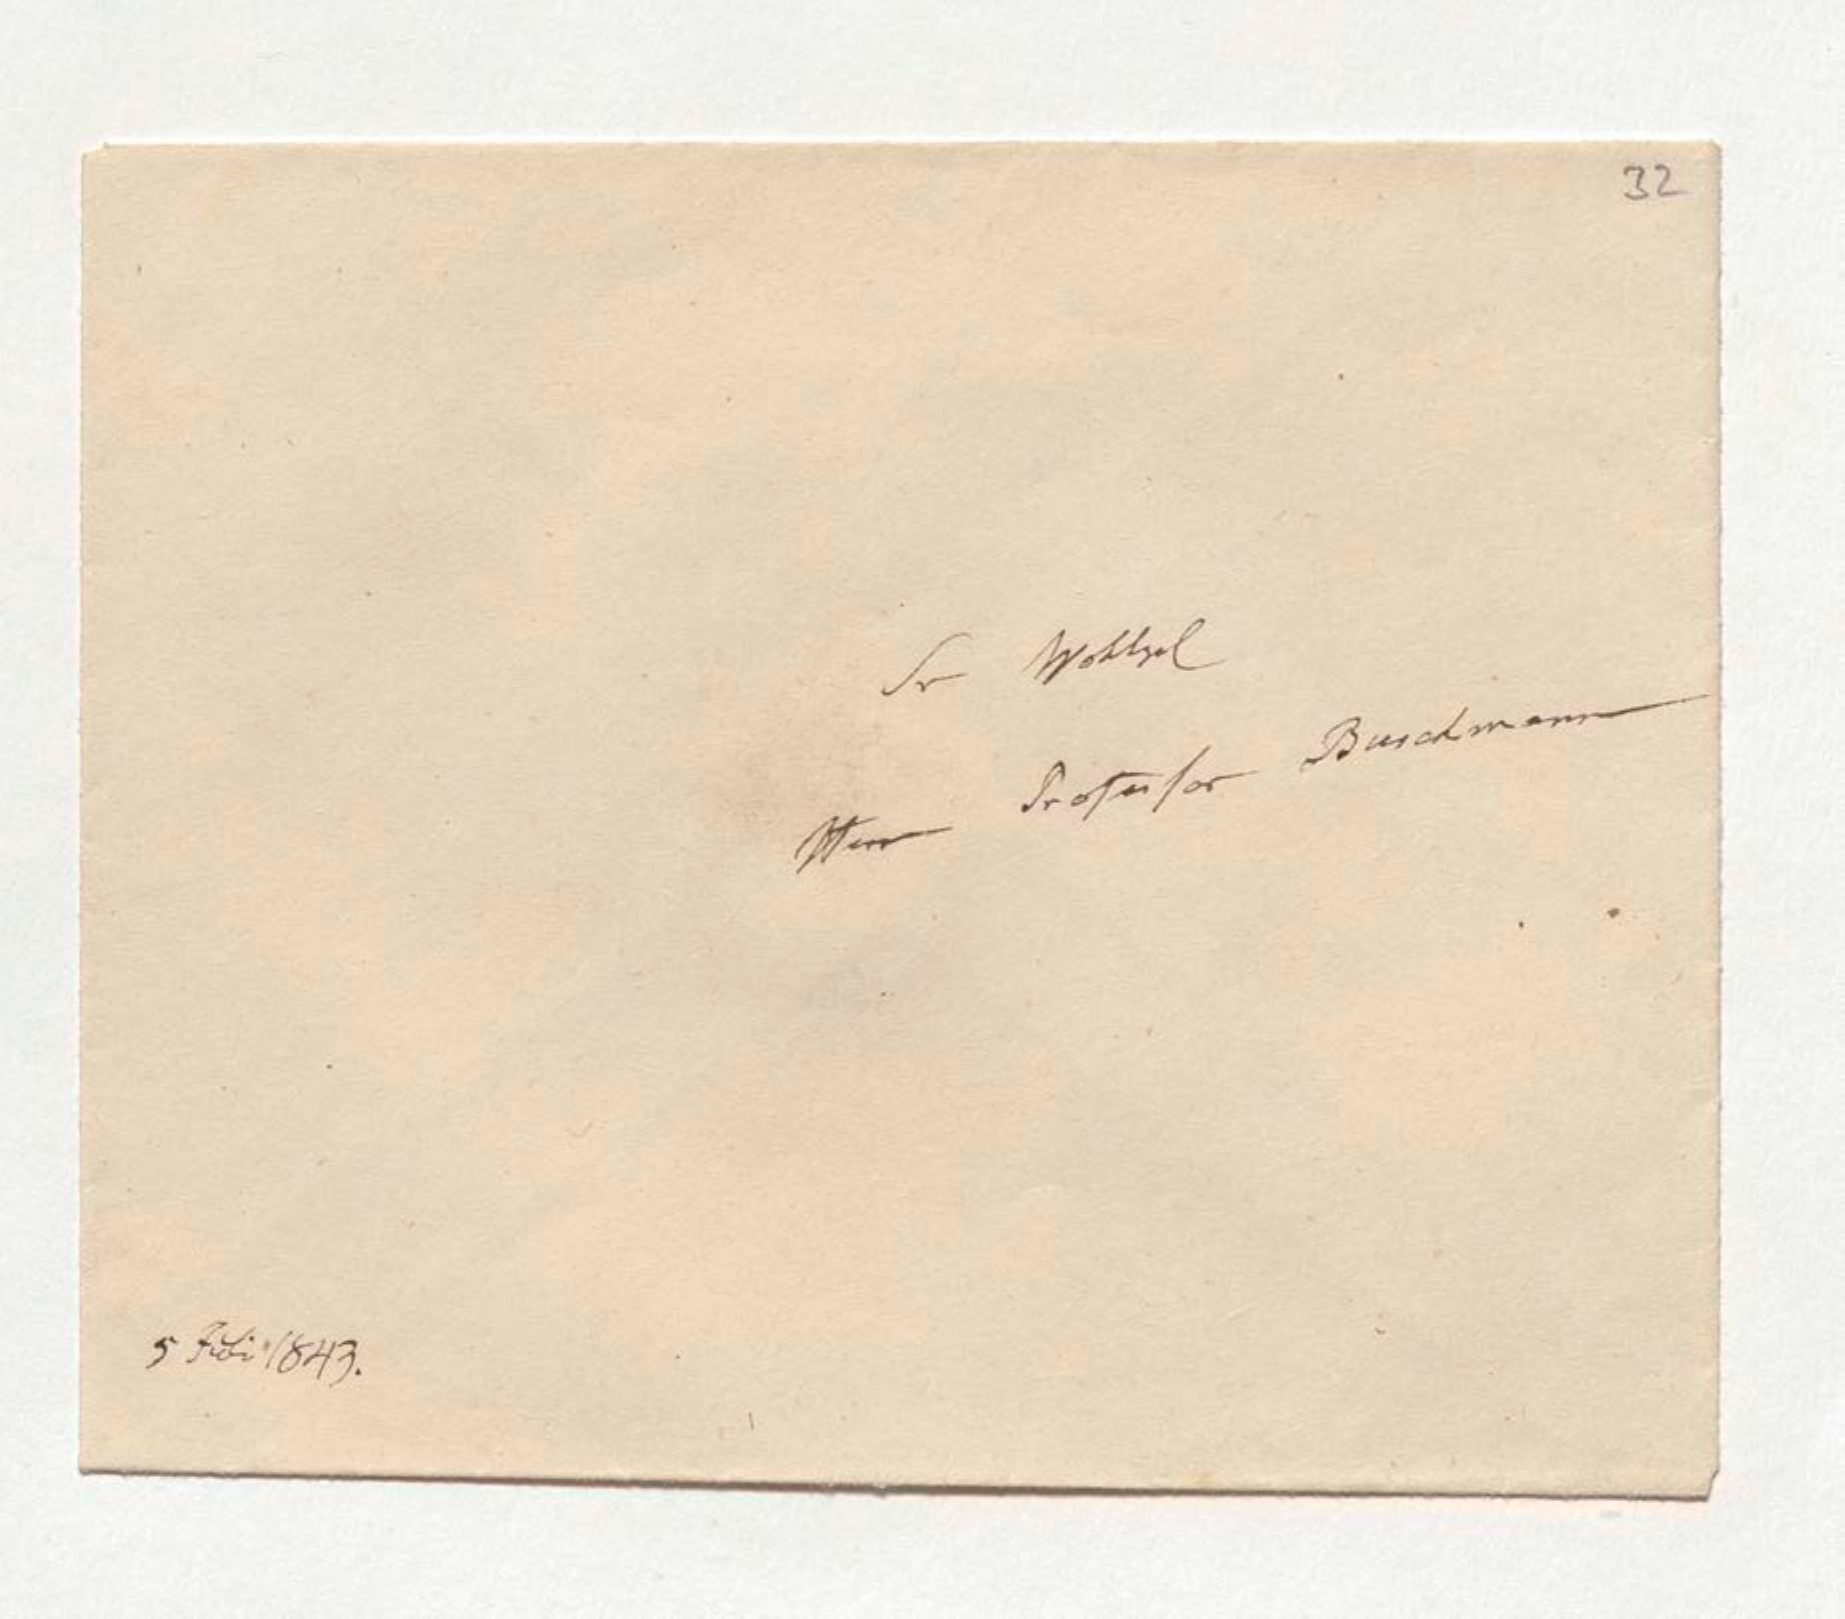 32
Sr Wohlgel
Herr Professor Buschmann
5 Juli 1843.